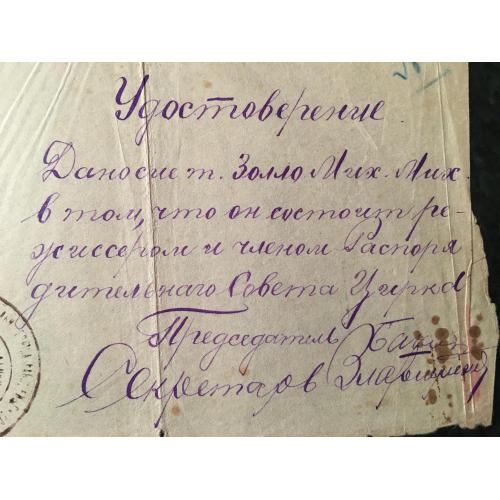 Удостоверение
Дано сие т. Золло Мих. Мих.
в том, что он состоит ре-
жиссером и членом Распоря
дительнаго Совета Цирка
Председатель
Секретарь